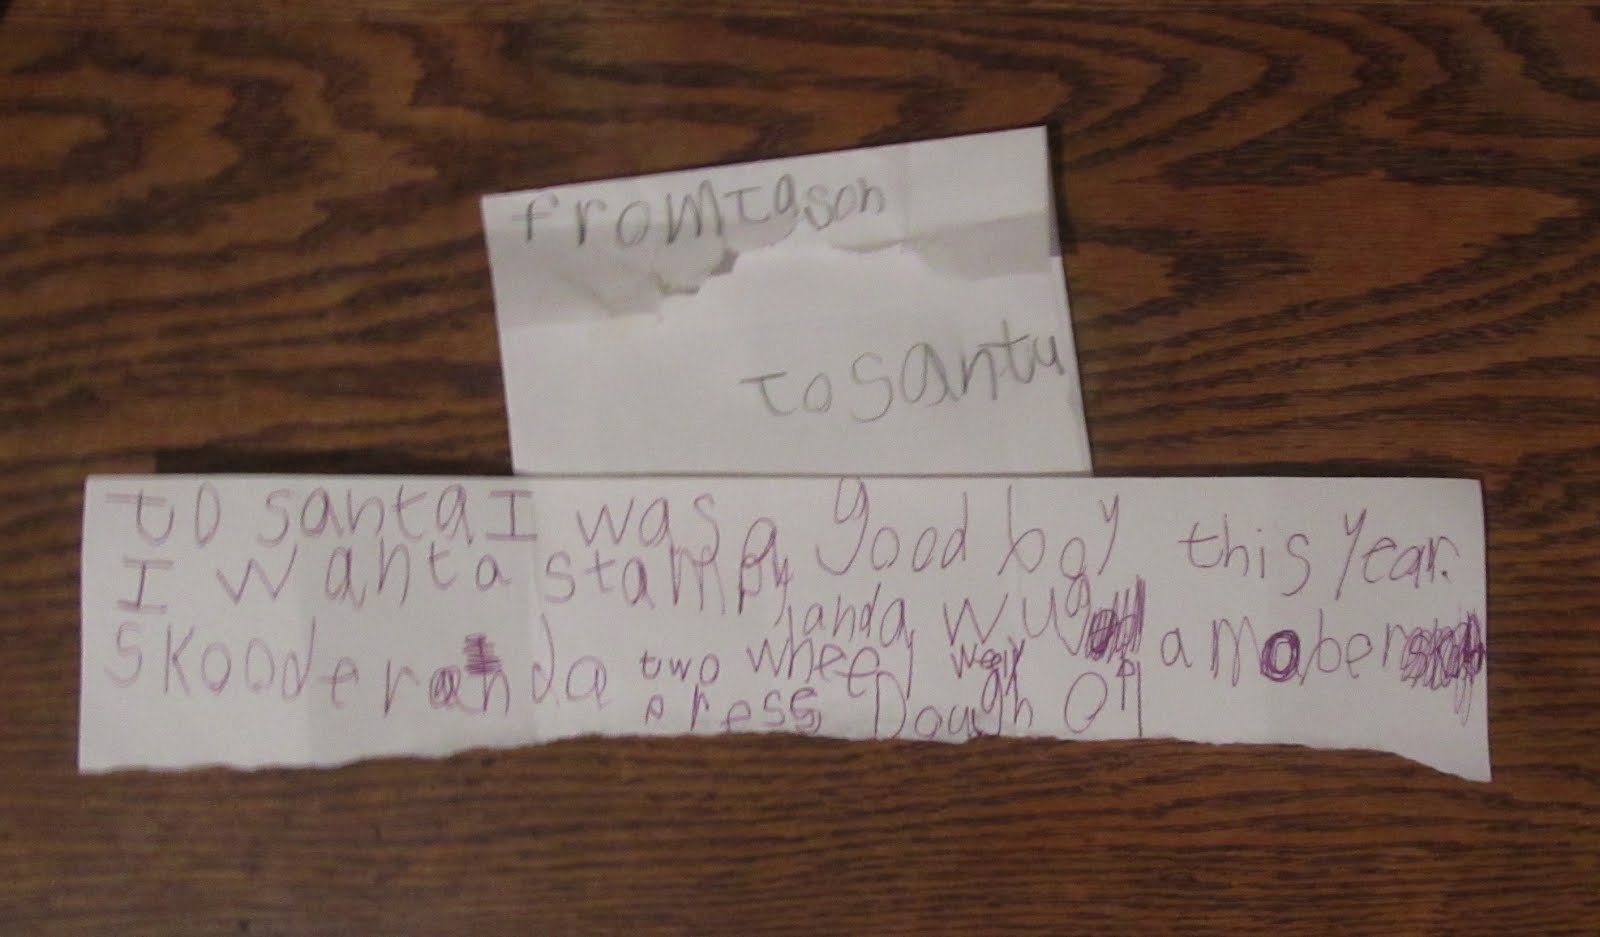 from Jason
to santu
to santa I was a good boy this year.
I want a stampy and a wug a mober
skooder and a two wheel
press Dough